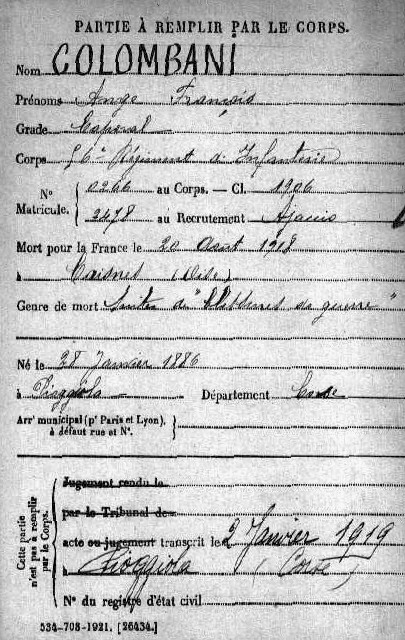 PARTIE À REMPLIR PAR LE CORPS.
Nom COLOMBANI
Prénoms Ange François
Grade Caporal
Corps 56e Régiment d'Infanterie
N° Matricule. 0266 au Corps. — Cl. 1906
2478 au Recrutement Ajaccio
Mort pour la France le 20 Août 1918
à (Oise)
Genre de mort Suites de "blessures de guerre"
Né le 28 Janvier 1886
à Pioggiola Département Corse
Arrt municipal (pr Paris et Lyon), à défaut rue et N°.
Cette partie n'est pas à remplir par le Corps.
Jugement rendu le
par le Tribunal de
acte ou jugement transcrit le 2 Janvier 1919
à Pioggiola (Corse)
N° du registre d'état civil
534-708-1921. [26434.]